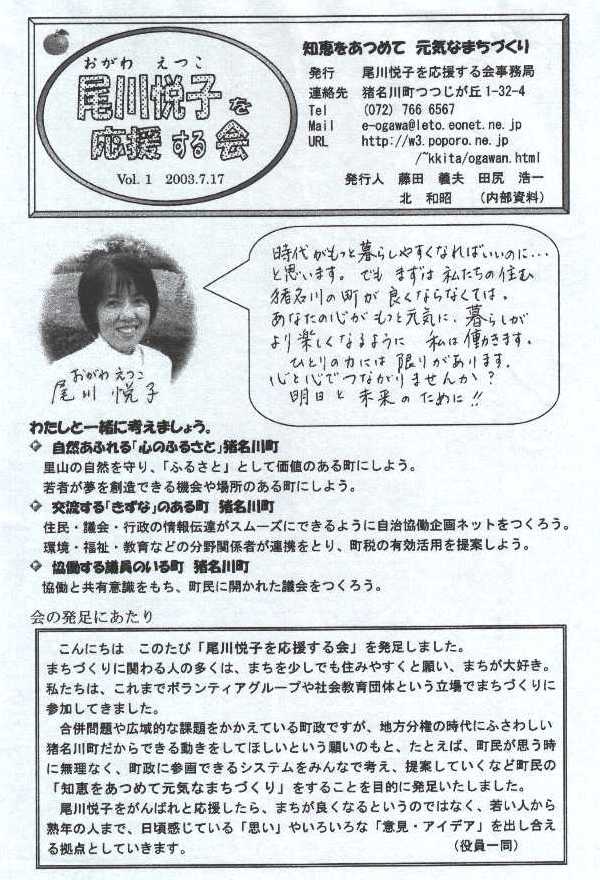 おがわ えつこ
尾川悦子を
応援する会
Vol. 1 2003.7.17
知恵をあつめて 元気なまちづくり
発行 尾川悦子を応援する会事務局
連絡先 猪名川町つつじが丘1-32-4
Tel (072) 766 6567
Mail e-ogawa@leto.eonet.ne.jp
URL http://w3.poporo.ne.jp
/~kkita/ogawan.html
発行人 藤田 義夫 田尻 浩一
北 和昭 (内部資料)
時代がもっと暮らしやすくなればいいのに…
と思います。でも まずは 私たちの住む
猪名川の町が 良くならなくては。
あなたの心が もっと元気に、暮らしが
より楽しくなるように 私は働きます。
ひとりの力には 限りがあります。
心と心でつながりませんか?
明日と未来のために!!
おがわ えつこ
尾川 悦子
わたしと一緒に考えましょう。
◇ 自然あふれる「心のふるさと」猪名川町
里山の自然を守り、「ふるさと」として価値のある町にしよう。
若者が夢を創造できる機会や場所のある町にしよう。
◇ 交流する「きずな」のある町 猪名川町
住民・議会・行政の情報伝達がスムーズにできるように自治協働企画ネットをつくろう。
環境・福祉・教育などの分野関係者が連携をとり、町税の有効活用を提案しよう。
◇ 協働する議員のいる町 猪名川町
協働と共有意識をもち、町民に開かれた議会をつくろう。
会の発足にあたり
こんにちは このたび「尾川悦子を応援する会」を発足しました。
まちづくりに関わる人の多くは、まちを少しでも住みやすくと願い、まちが大好き。
私たちは、これまでボランティアグループや社会教育団体という立場でまちづくりに
参加してきました。
合併問題や広域的な課題をかかえている町政ですが、地方分権の時代にふさわしい
猪名川町だからできる動きをしてほしいという願いのもと、たとえば、町民が思う時
に無理なく、町政に参画できるシステムをみんなで考え、提案していくなど町民の
「知恵をあつめて元気なまちづくり」をすることを目的に発足いたしました。
尾川悦子をがんばれと応援したら、まちが良くなるというのではなく、若い人から
熟年の人まで、日頃感じている「思い」やいろいろな「意見・アイデア」を出し合え
る拠点としていきます。 (役員一同)